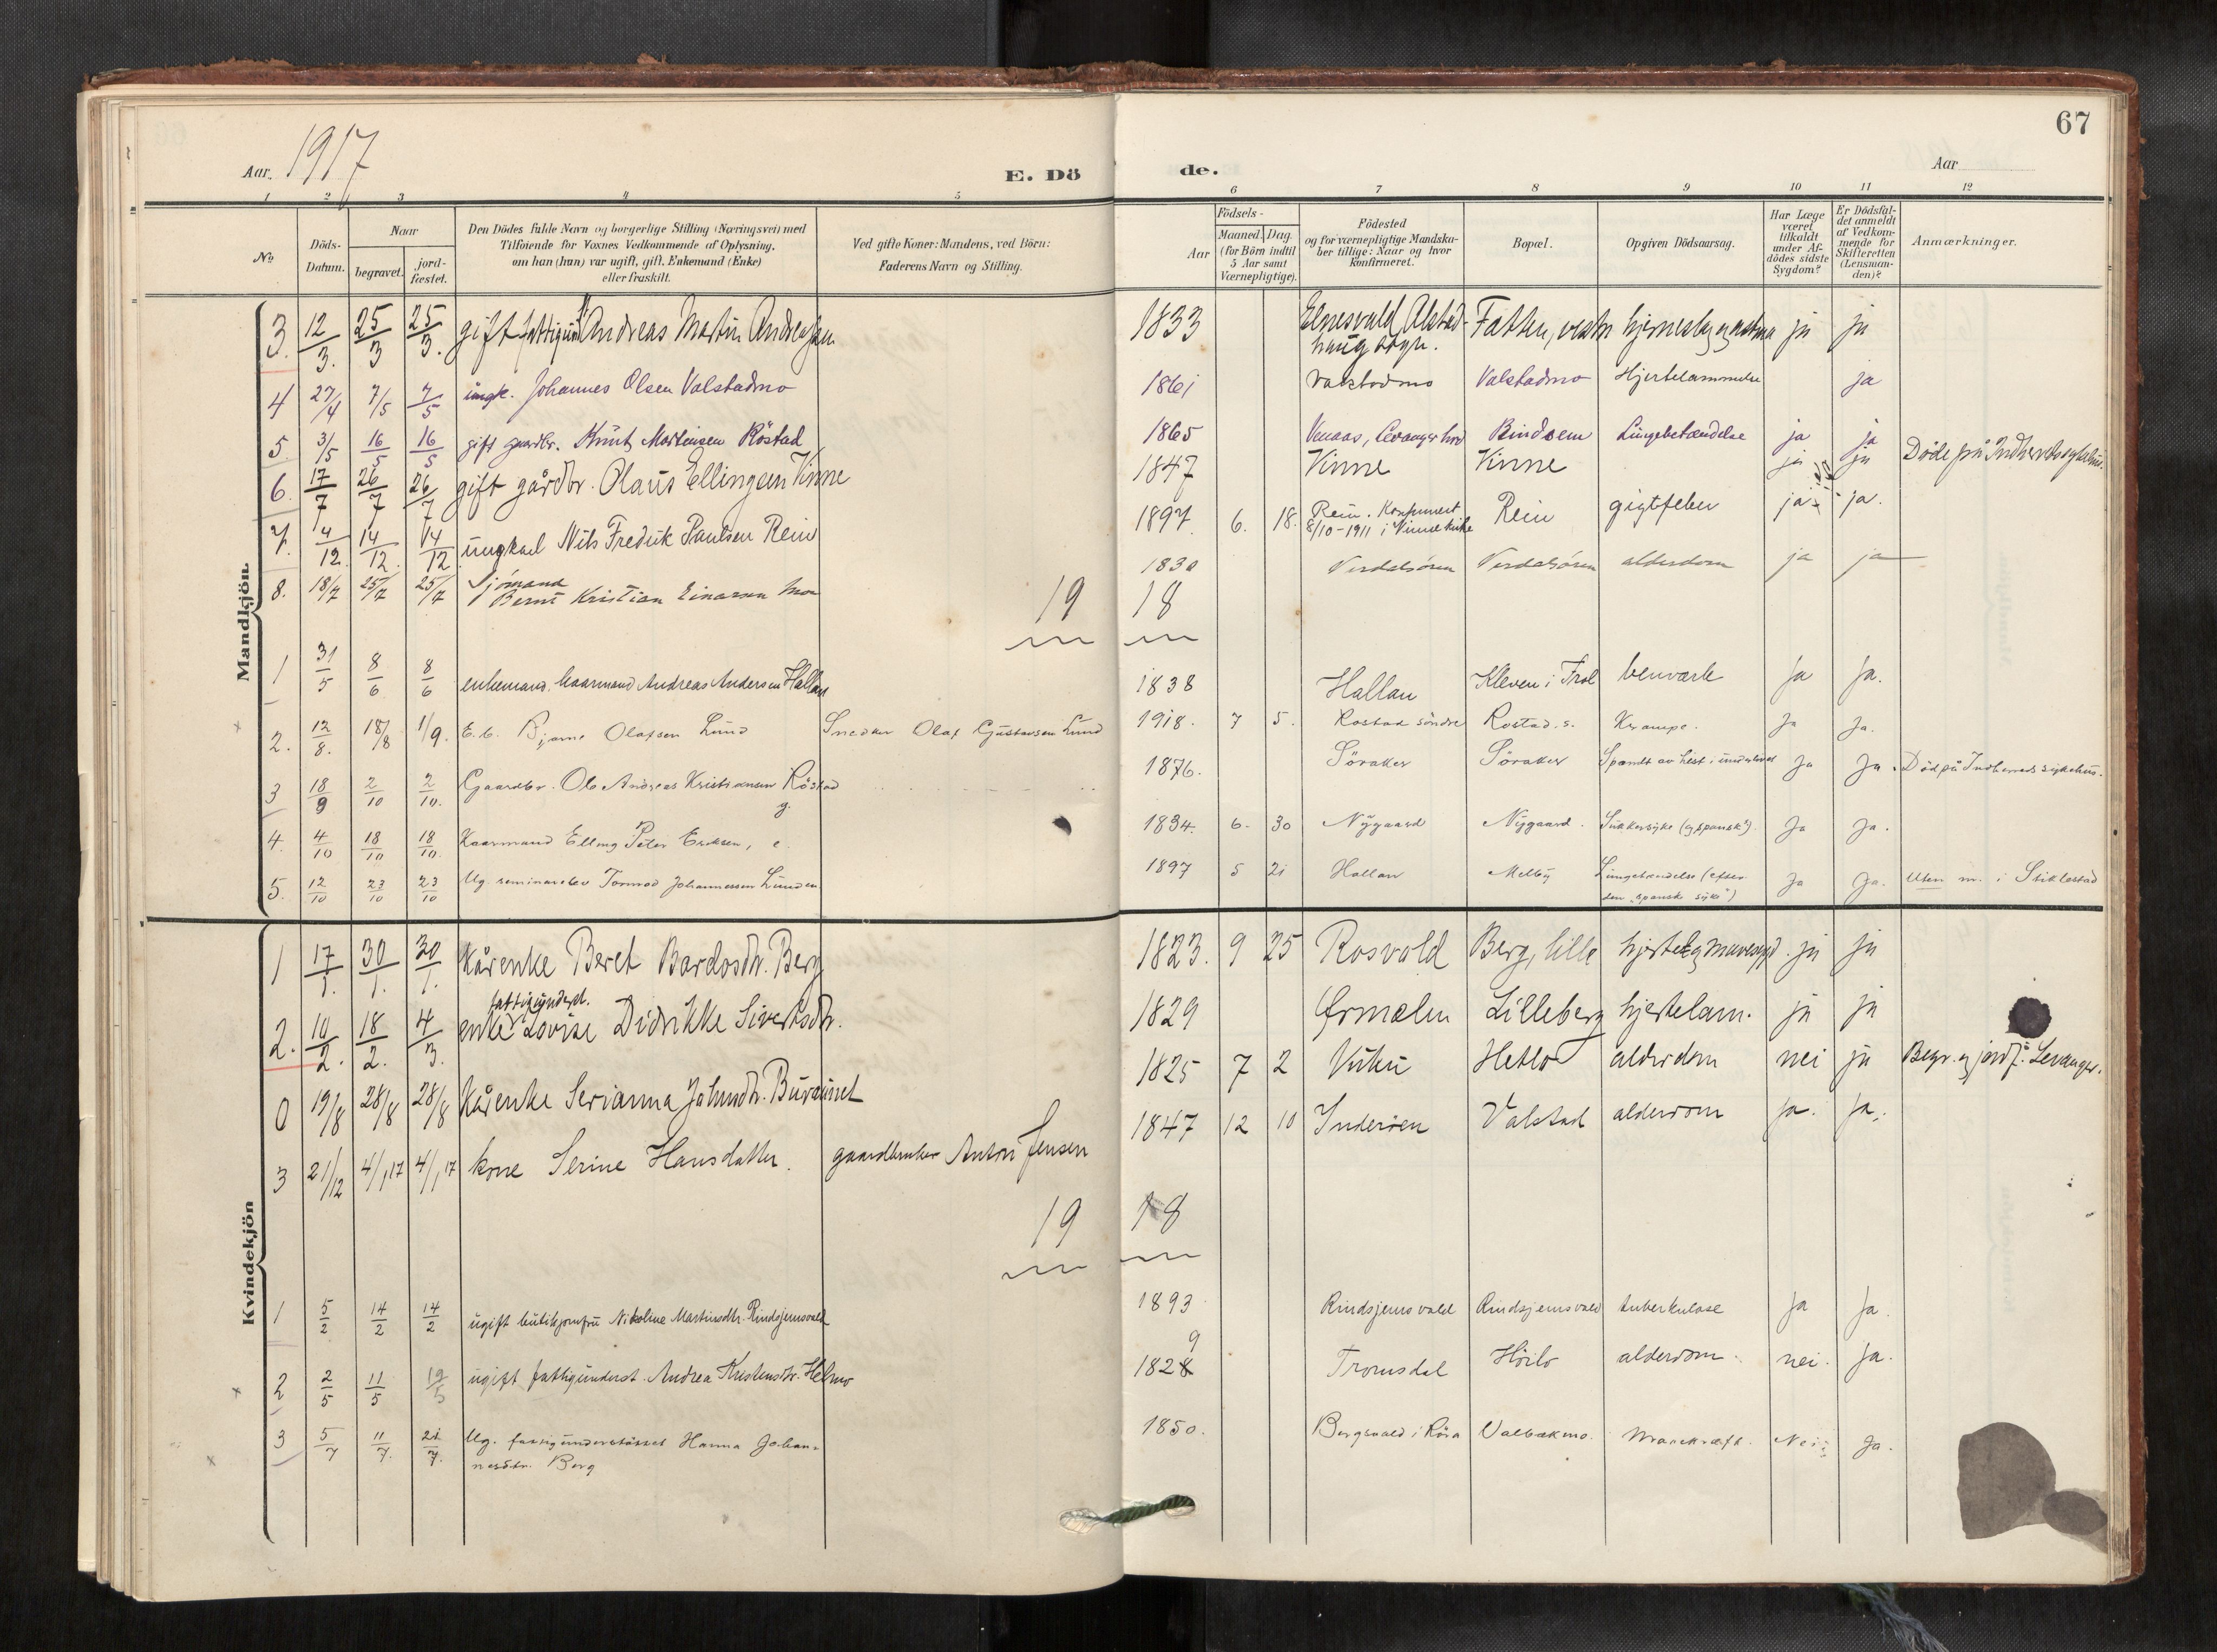 67
Aar. 1917
E. Dö de.
Aar
1 2 3 4 5 6 7 8 9 10 11 12
No
Döds-Datum.
Naar
begravet.
jord-fæstet.
Den Dödes fulde Navn og borgerlige Stilling (Næringsvei) med
Tilföiende for Voxnes Vedkommende af Oplysning,
om han (hun) var ugift, gift, Enkemand (Enke)
eller fraskilt.
Ved gifte Koner: Mandens, ved Börn:
Faderens Navn og Stilling.
Födsels-
Aar
Maaned. Dag.
(for Börn indtil
5 Aar samt
Værnepligtige).
Födested
og for værnepligtige Mandska-
ber tillige: Naar og hvor
Konfirmeret.
Bopæl.
Opgiven Dödsaarsag.
Har Læge
været
tilkaldt
under Af-
dödes sidste
Sygdom?
Er Dödsfal-
det anmeldt
af Vedkom-
mende for
Skifteretten
(Lensman-
den)?
Anmærkninger.
Mandkjön.
3. 12/3. 25/3 25/3. gift Andreas Martin Andreassen 1833 Elnesvald, Alstad-haug Fatten, ja ja
4 27/4 7/5 7/5 ungk. Johannes Olsen Valstadmo 1861 Valstadmo Valstadmo Hjertelammelse ja
5. 3/5 16/5 16/5 gift gaardbr. Knut Martinsen Röstad 1865 Levanger Rindsem Lungebetændelse ja ja
6. 17/7 26/7 26/7 gift gårdbr. Olaus Ellingsen Vinne 1847 Vinne Vinne ja ja Döde på Indherreds sykehus.
7. 4/12. 14/12. 14/12 ungkarl Nils Fredrik Paulsen Rein 1897. 6. 18. Rein. Konfirmert 8/10-1911 i Vinne kirke Rein gigtfeber ja ja.
8. 18/7 25/7 25/7 Sjömand Bernt Kristian Einarsen Moe 1830 Verdalsören Verdalsören alderdom ja ja
19 18
1 31/5 8/6 8/6 enkemand, kaarmand Andreas Andersen Hallan 1838 Hallan Kleven i Frol benvark Ja Ja.
2. 12/8. 18/8 1/9. E. b. Bjarne Olafsen Lund Snedker Olaf Gustavsen Lund 1918. 7 5. Rostad söndre Rostad. s. Krampe. Ja Ja.
3 18/9 2/10 2/10. Gaardbr. Ole Andreas Kristiansen Röstad g. 1876. Söraker Söraker Spændt av hest i underlivet Ja Ja. Död på Indherreds sykehus.
4. 4/10 18/10 18/10. Kaarmand Elling Peter Eriksen, e. 1834. 6. 30 Nygaard Nygaard. Sukkersyke (og "spansk") Ja Ja.
5. 12/10 23/10 23/10 Ug. seminarelev Tormod Johannessen Lunden 1897 5 21 Hallan Melby Lungebetændelse (efter den "spanske syke") Ja Ja. Uten m. i Stiklestad
Kvindekjön
1 17/1. 30/1. 30/1. Kårenke Beret Bardosdtr. Berg 1823. 9 25 Rosvold Berg, lille hjerte og mavesygd. ja ja
2. 10/2. 18/2. 4/3. enke fattigunderst. Lovise Didrikke Sivertsdtr. 1829 Ørmelen Lilleberg hjertelam. ja ja
0 19/8 28/8 28/8 Kårenke Serianna Johnsdtr. Buraunet 1825 7 2 Vuku Hetlo alderdom nei ja Begr. og jordf. i Levanger.
3 21/12 4/1 17 4/1 17 kone Serine Hansdatter. gaardbruker Anton Jensen 1847 12 10 Inderöen Valstad alderdom ja. ja.
19 18
1 5/2 14/2 14/2 ugift butikjomfru Nikoline Martinsdtr. Rindsjemsvald 1893 Rindsjemsvald Rindsjemsvald tuberkulose Ja Ja.
2 2/5 11/5 19/5 ugift fattigunderst. Andrea Kristensdtr. Helmo 1829 Tromsdal Höilo alderdom. nei. Ja.
3 5/7 11/7. 21/7. Ug. fattigunderstöttet Hanna Johan-
nesdtr. Berg 1850. Bergsvald i Röra Valbækmo. Mavekræft. Nei Ja.